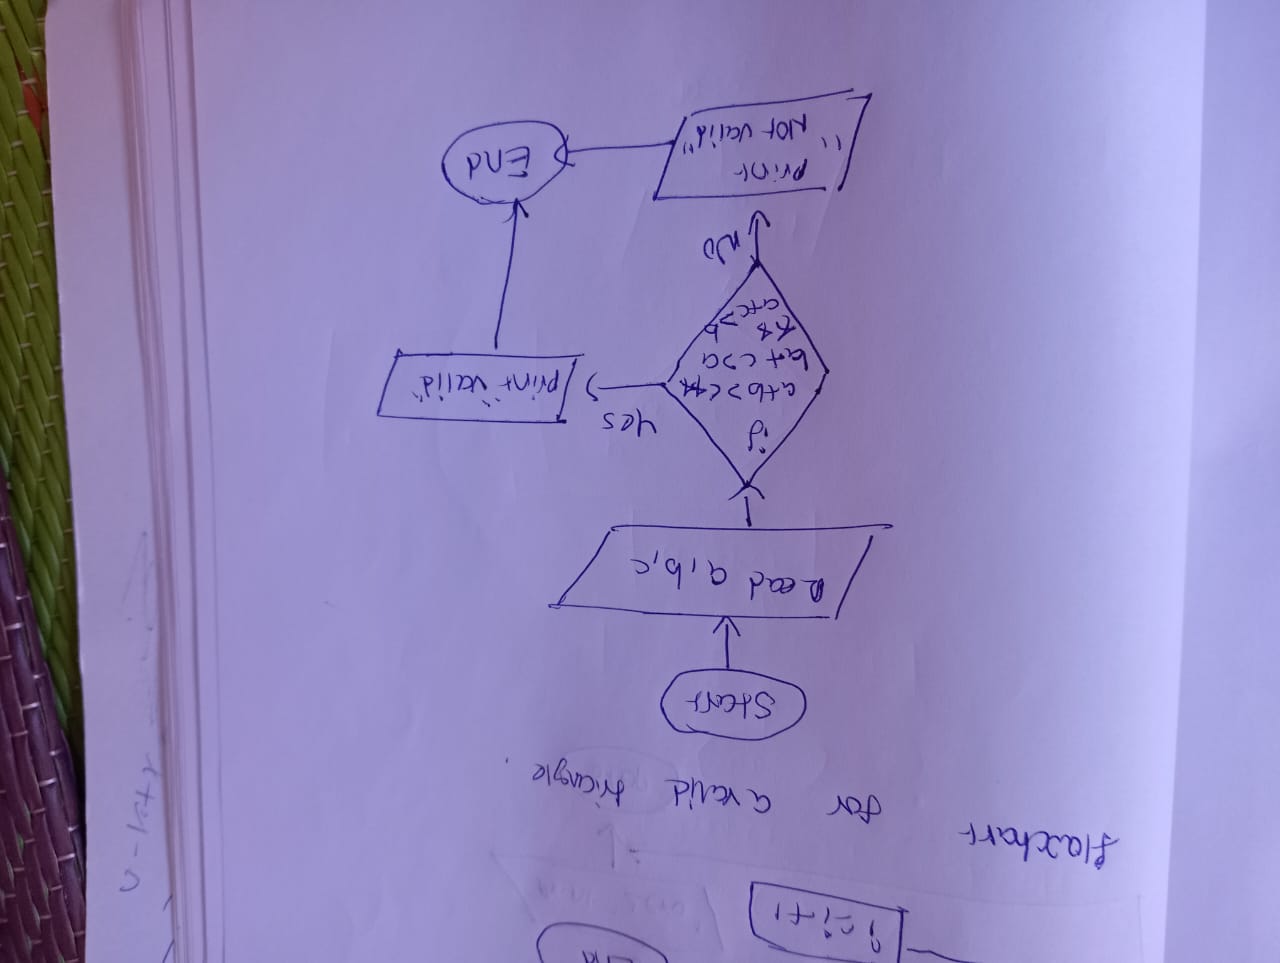 End
i=i+1
flaxchart for a valid triangle.
Start
Read a,b,c
if
a+b>c
b+c>a
&&
a+c>b
Yes
print "valid"
No
print
"Not valid"
End